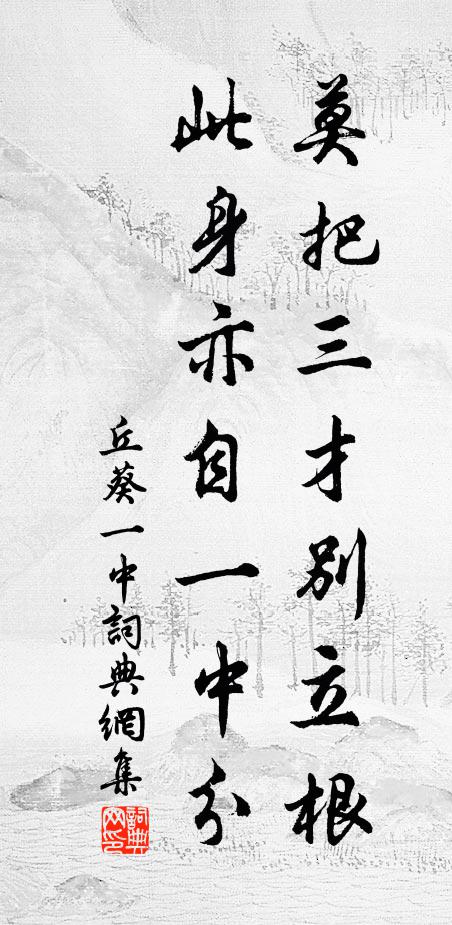 莫把三才別立根
此身亦自一中分
丘葵一中詞典網集
詞典網印